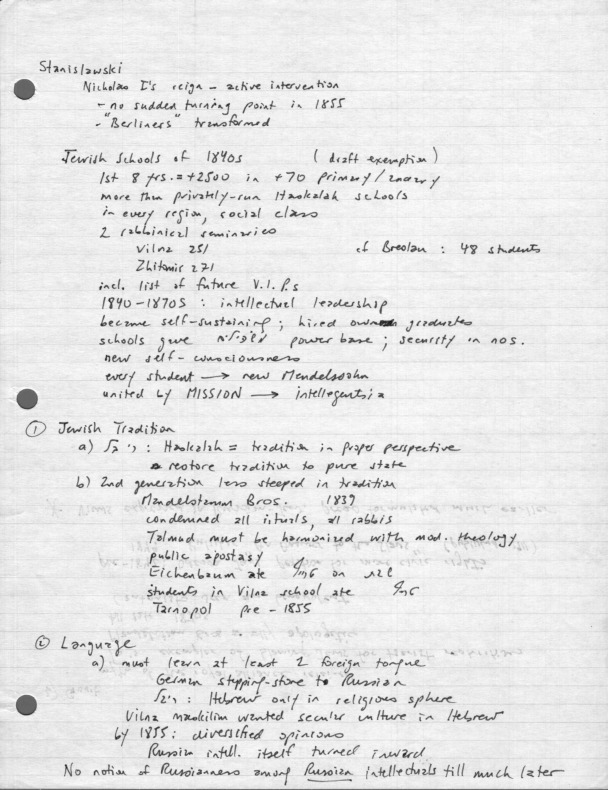 Stanislawski
Nicholas I's reign – active intervention
– no sudden turning point in 1855
– "Berliners" transformed
Jewish Schools of 1840s (draft exemption)
1st 8 yrs. = +2500 in +70 primary/2ndary
more than privately-run Haskalah schools
in every region, social class
2 rabbinical seminaries
Vilna 251 cf Breslau : 48 students
Zhitomir 271
incl. list of future V.I.P.s
1840–1870s : intellectual leadership
became self-sustaining ; hired own graduates
schools gave power base ; security in nos.
new self-consciousness
every student → new Mendelssohn
united by MISSION → intelligentsia
① Jewish Tradition
a) ריב״ל : Haskalah = tradition in proper perspective
restore tradition to pure state
b) 2nd generation less steeped in tradition
Mandelstamm Bros. 1839
condemned all rituals, all rabbis
Talmud must be harmonized with mod. theology
public apostasy
Eichenbaum ate on שבת
students in Vilna school ate
Tarnopol pre-1855
② Language
a) must learn at least 1 foreign tongue
German stepping-stone to Russian
ריב״ל : Hebrew only in religious sphere
Vilna maskilim wanted secular culture in Hebrew
by 1855 : diversified opinions
Russian intell. itself turned inward
No notion of Russianness among Russian intellectuals till much later